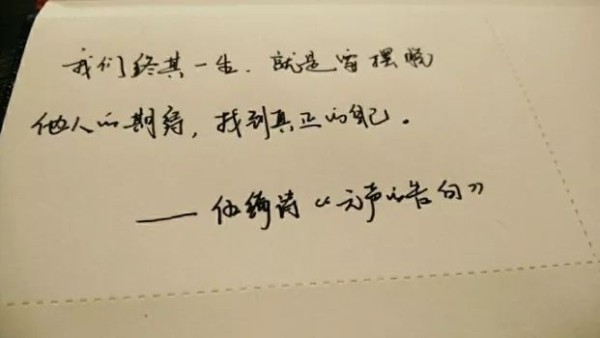 我们终其一生,就是要摆脱
他人的期待,找到真正的自己。
——伍绮诗《无声的告白》